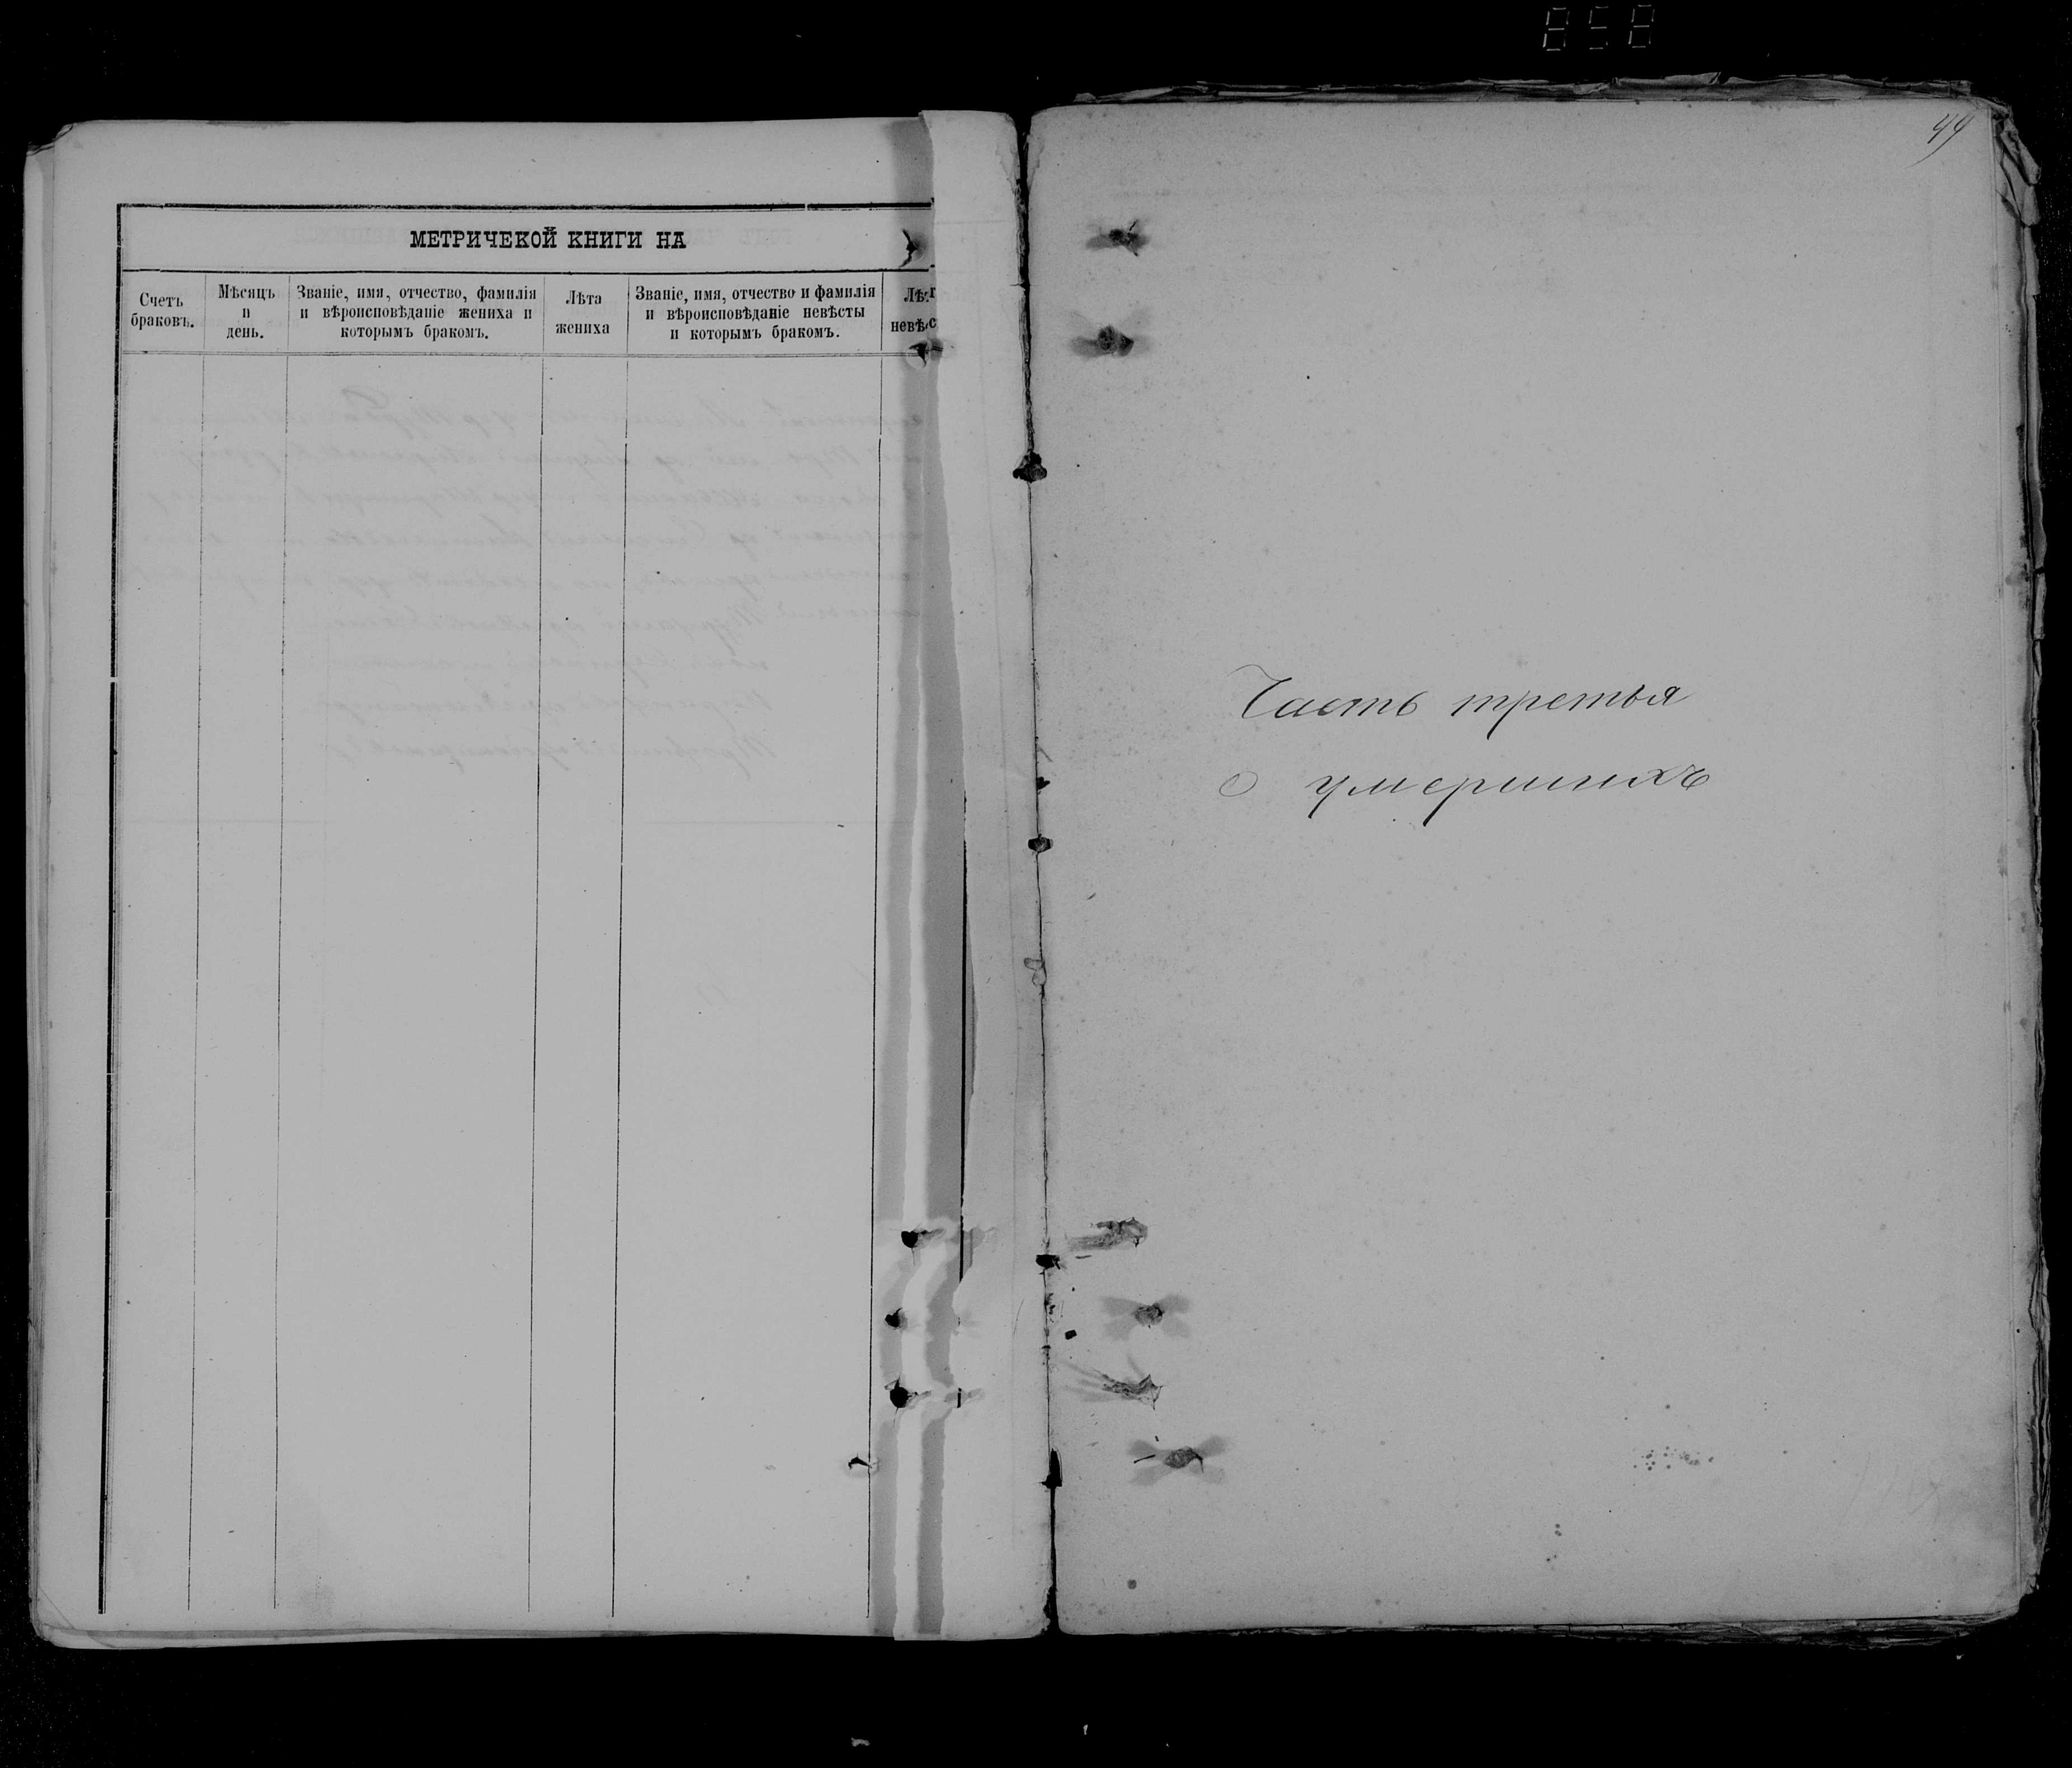 858
МЕТРИЧЕКОЙ КНИГИ НА
Счетъ
браковъ.
Мѣсяцъ
и
день.
Званіе, имя, отчество, фамилія
и вѣроисповѣданіе жениха и
которымъ бракомъ.
Лѣта
жениха
Званіе, имя, отчество и фамилія
и вѣроисповѣданіе невѣсты
и которымъ бракомъ.
Лѣт
невѣс
Часть третья
о умершихъ